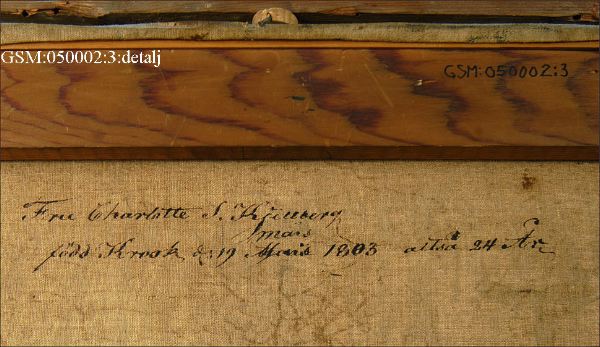 GSM:050002:3:detalj
GSM:050002:3
Fru Charlotte S. Kjellberg
Smais
född Krook d: 19 Maris 1803 altså 24 År